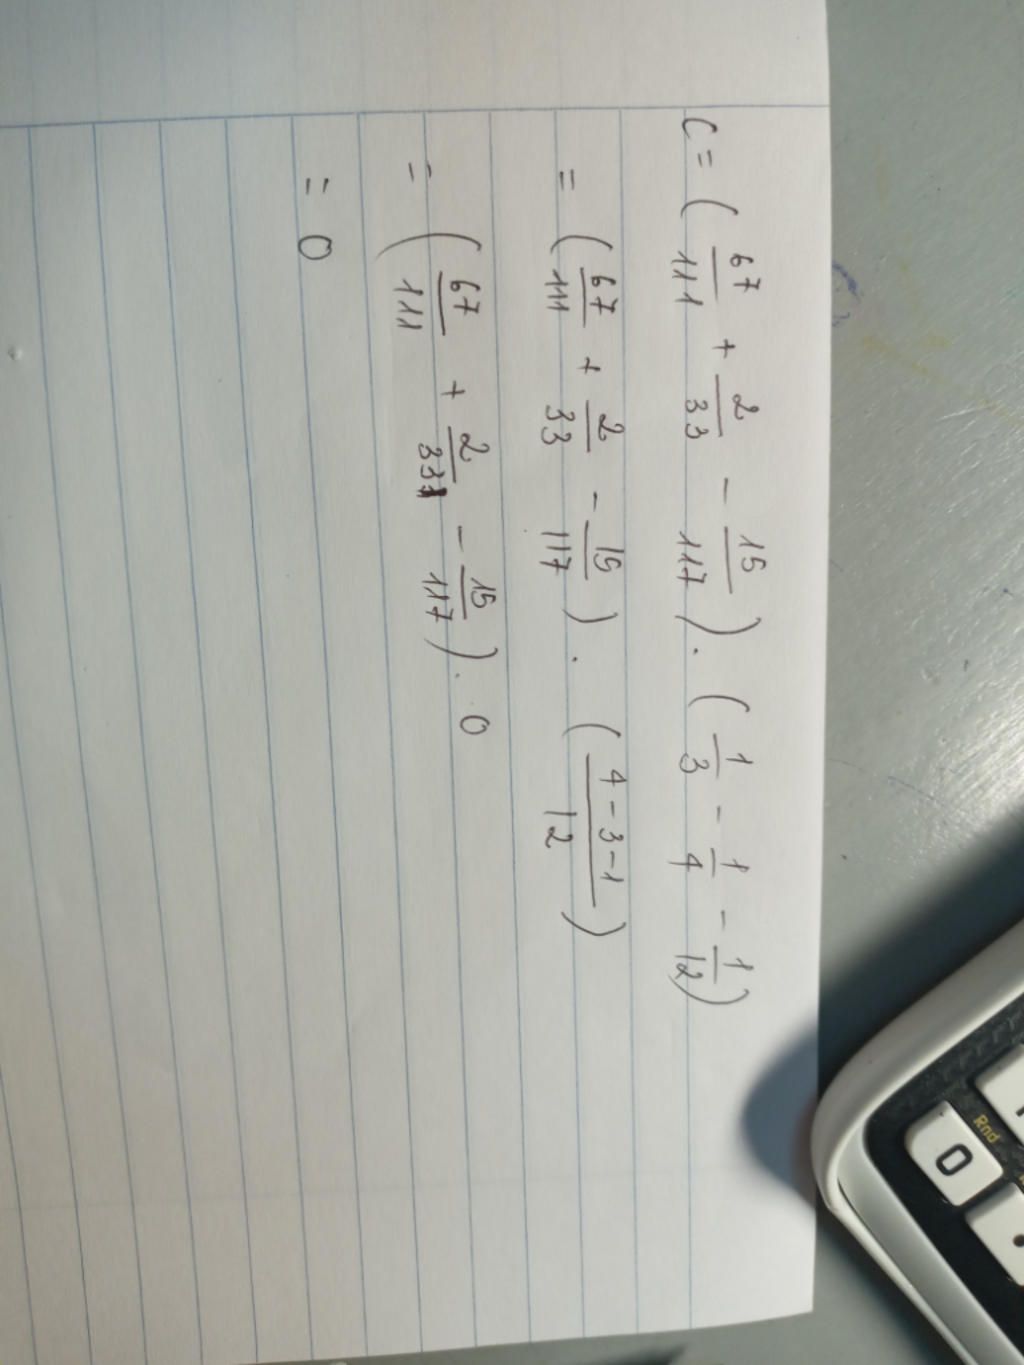 C = ( 67/111 + 2/33 - 15/117 ) . ( 1/3 - 1/4 - 1/12 )
= ( 67/111 + 2/33 - 15/117 ) . ( 4-3-1/12 )
= ( 67/111 + 2/33 - 15/117 ) . 0
= 0
Rnd
0